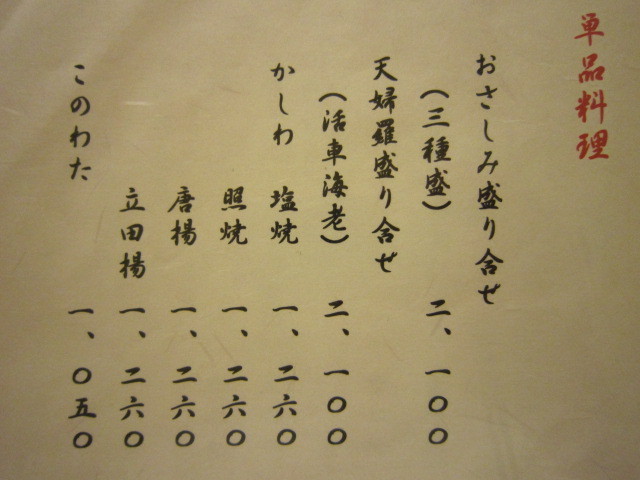 単品料理
おさしみ盛り合せ
(三種盛) 二、一〇〇
天婦羅盛り合せ
(活車海老) 二、一〇〇
かしわ 塩焼 一、二六〇
照焼 一、二六〇
唐揚 一、二六〇
立田揚 一、二六〇
このわた 一、〇五〇